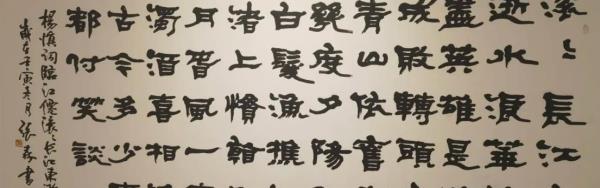 滚〻長江
逝水浪華
盡英雄是
成敗轉頭
青山依舊
幾度夕陽
白髮漁樵
渚上慣看
月旾風一
濁酒喜相
古今多少
都付笑談
楊慎詞臨江僊滚〻長江東逝
歲在壬寅春月張森書